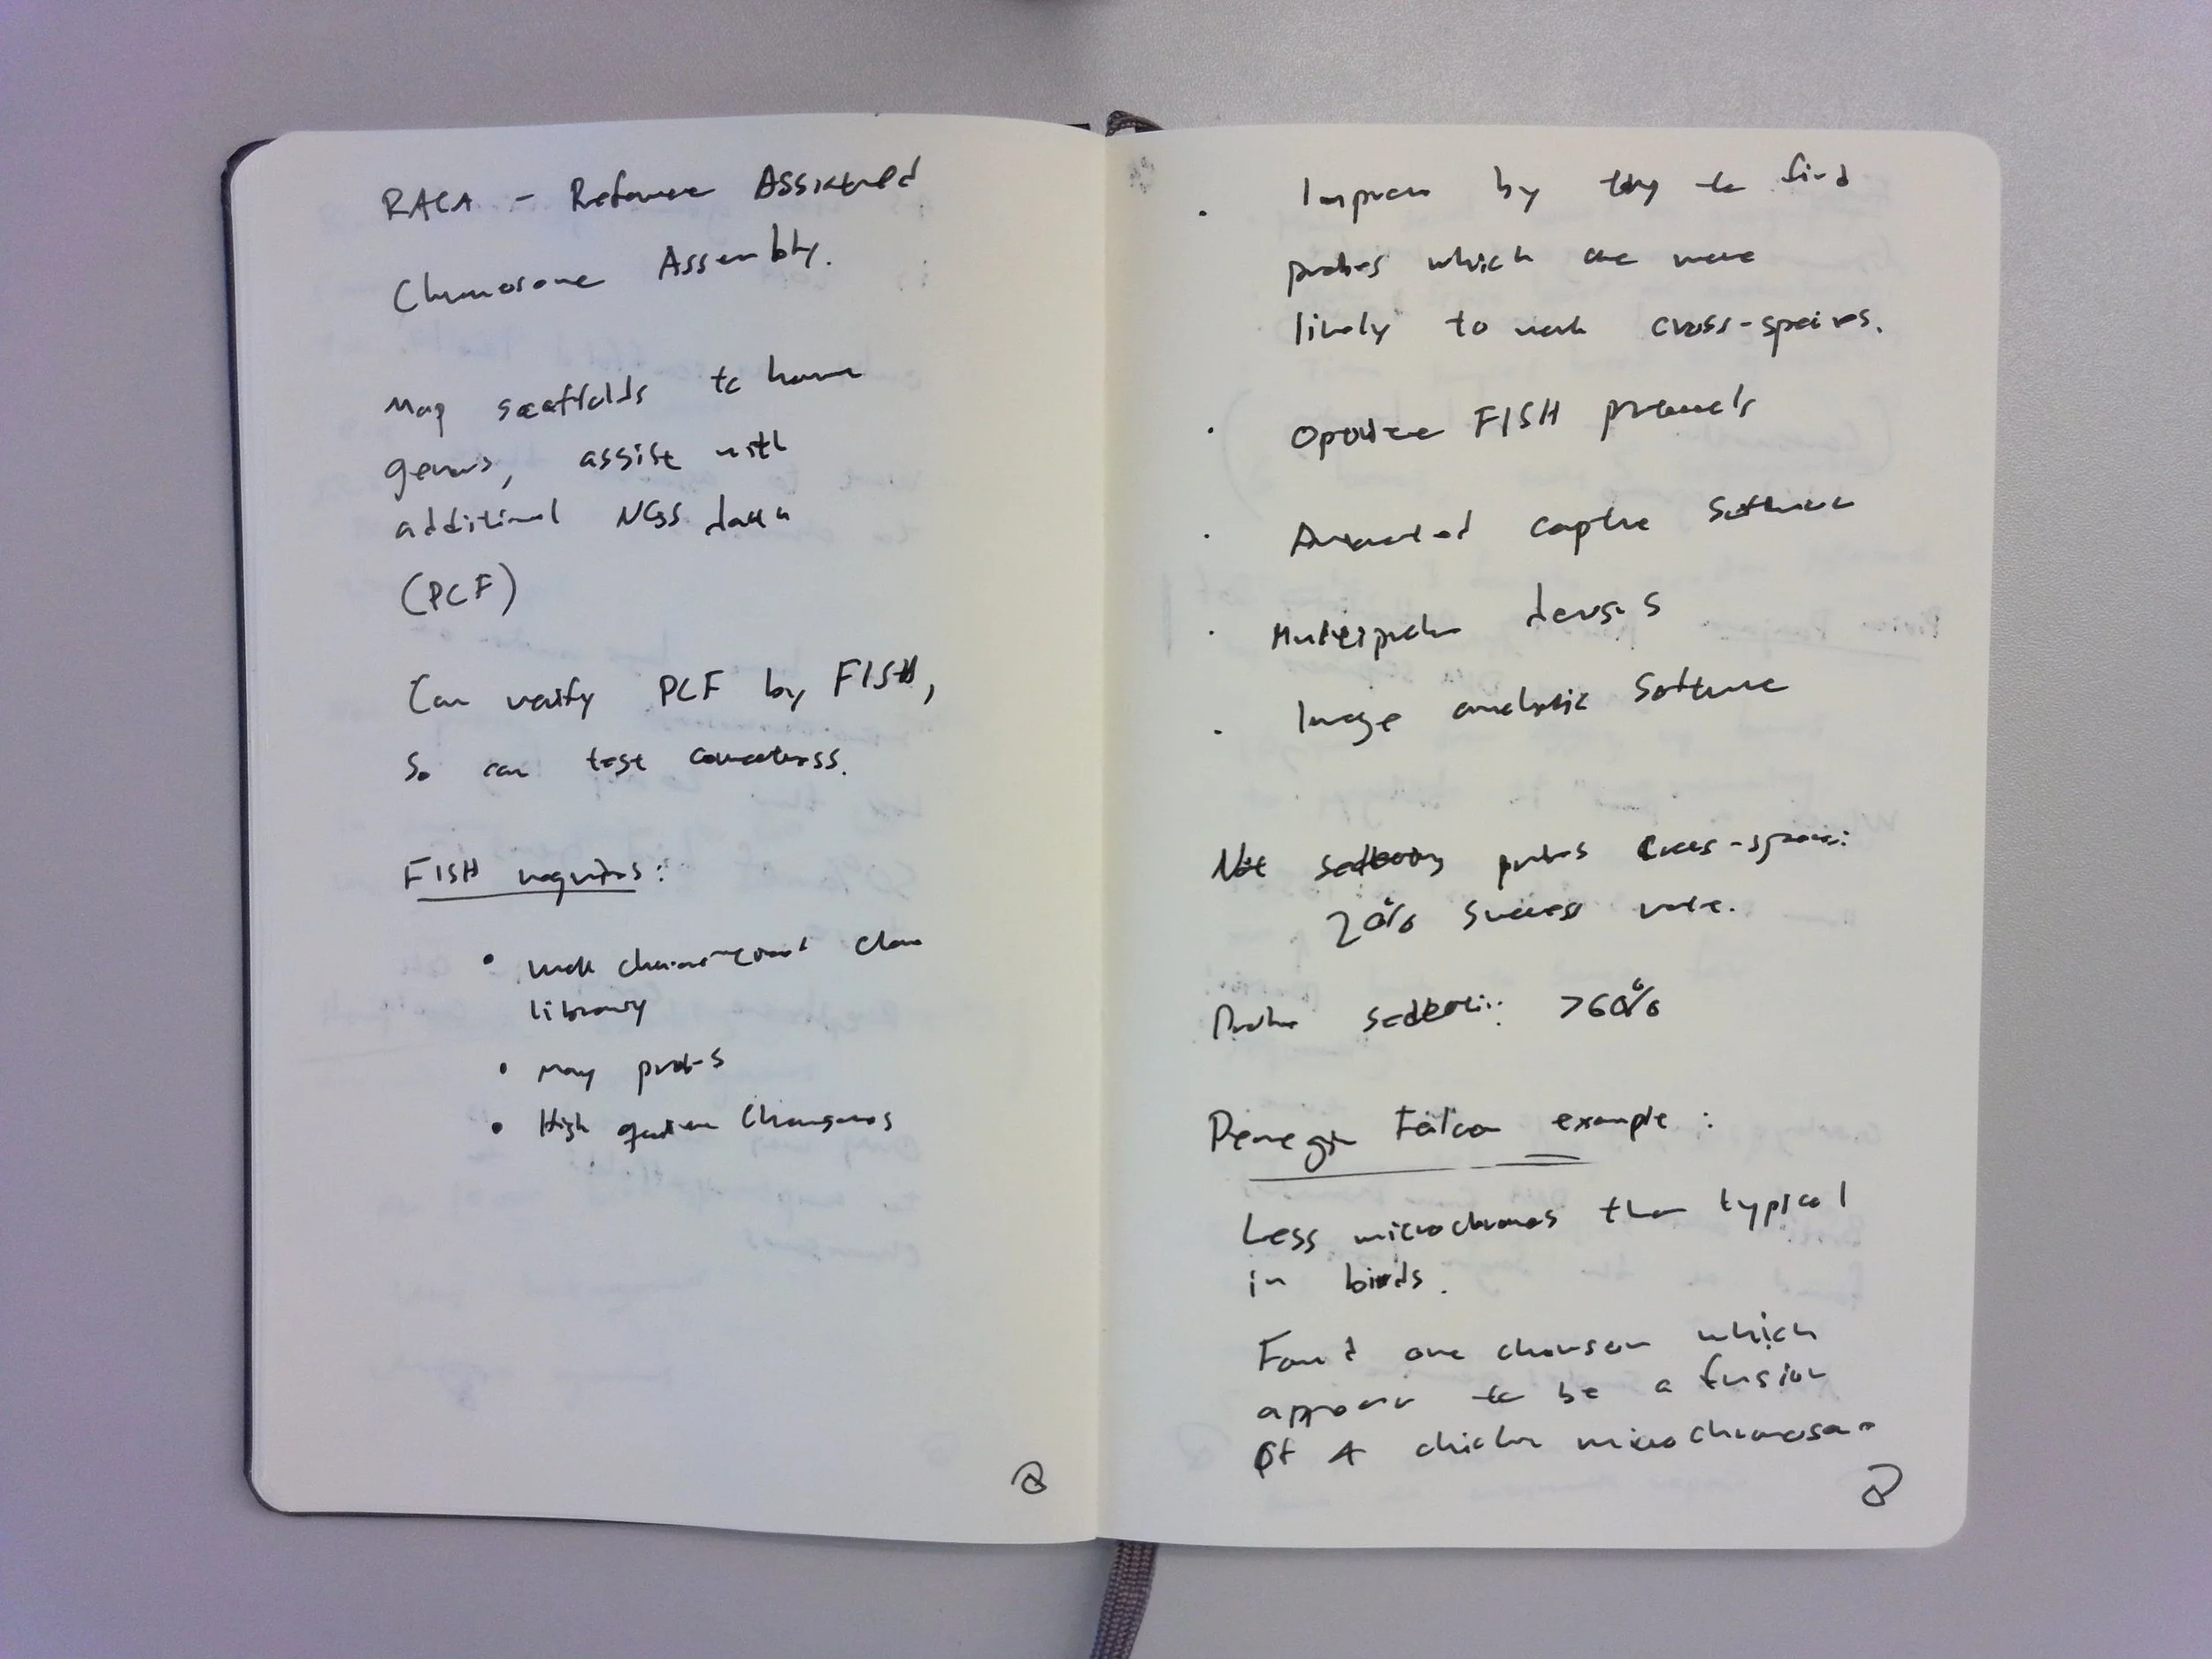 RACA - Reference Assisted
Chromosome Assembly.
Map scaffolds to known
genomes, assist with
additional NGS data
(PCF)
Can verify PCF by FISH,
So can test correctness.
FISH requires:
• well characterised clone
library
• Many probes
• High quality Chromosomes
• Improve by trying to find
probes which are more
likely to work cross-species.
• Optimise FISH protocols
• Automated capture Software
• Multiprobe devices
• Image analysis Software
Not selecting probes cross-species:
20% Success rate.
Probe selection: >60%
Peregrine Falcon example:
Less microchromes than typical
in birds.
Found one chromosome which
appears to be a fusion
of 4 chicken microchromosomes